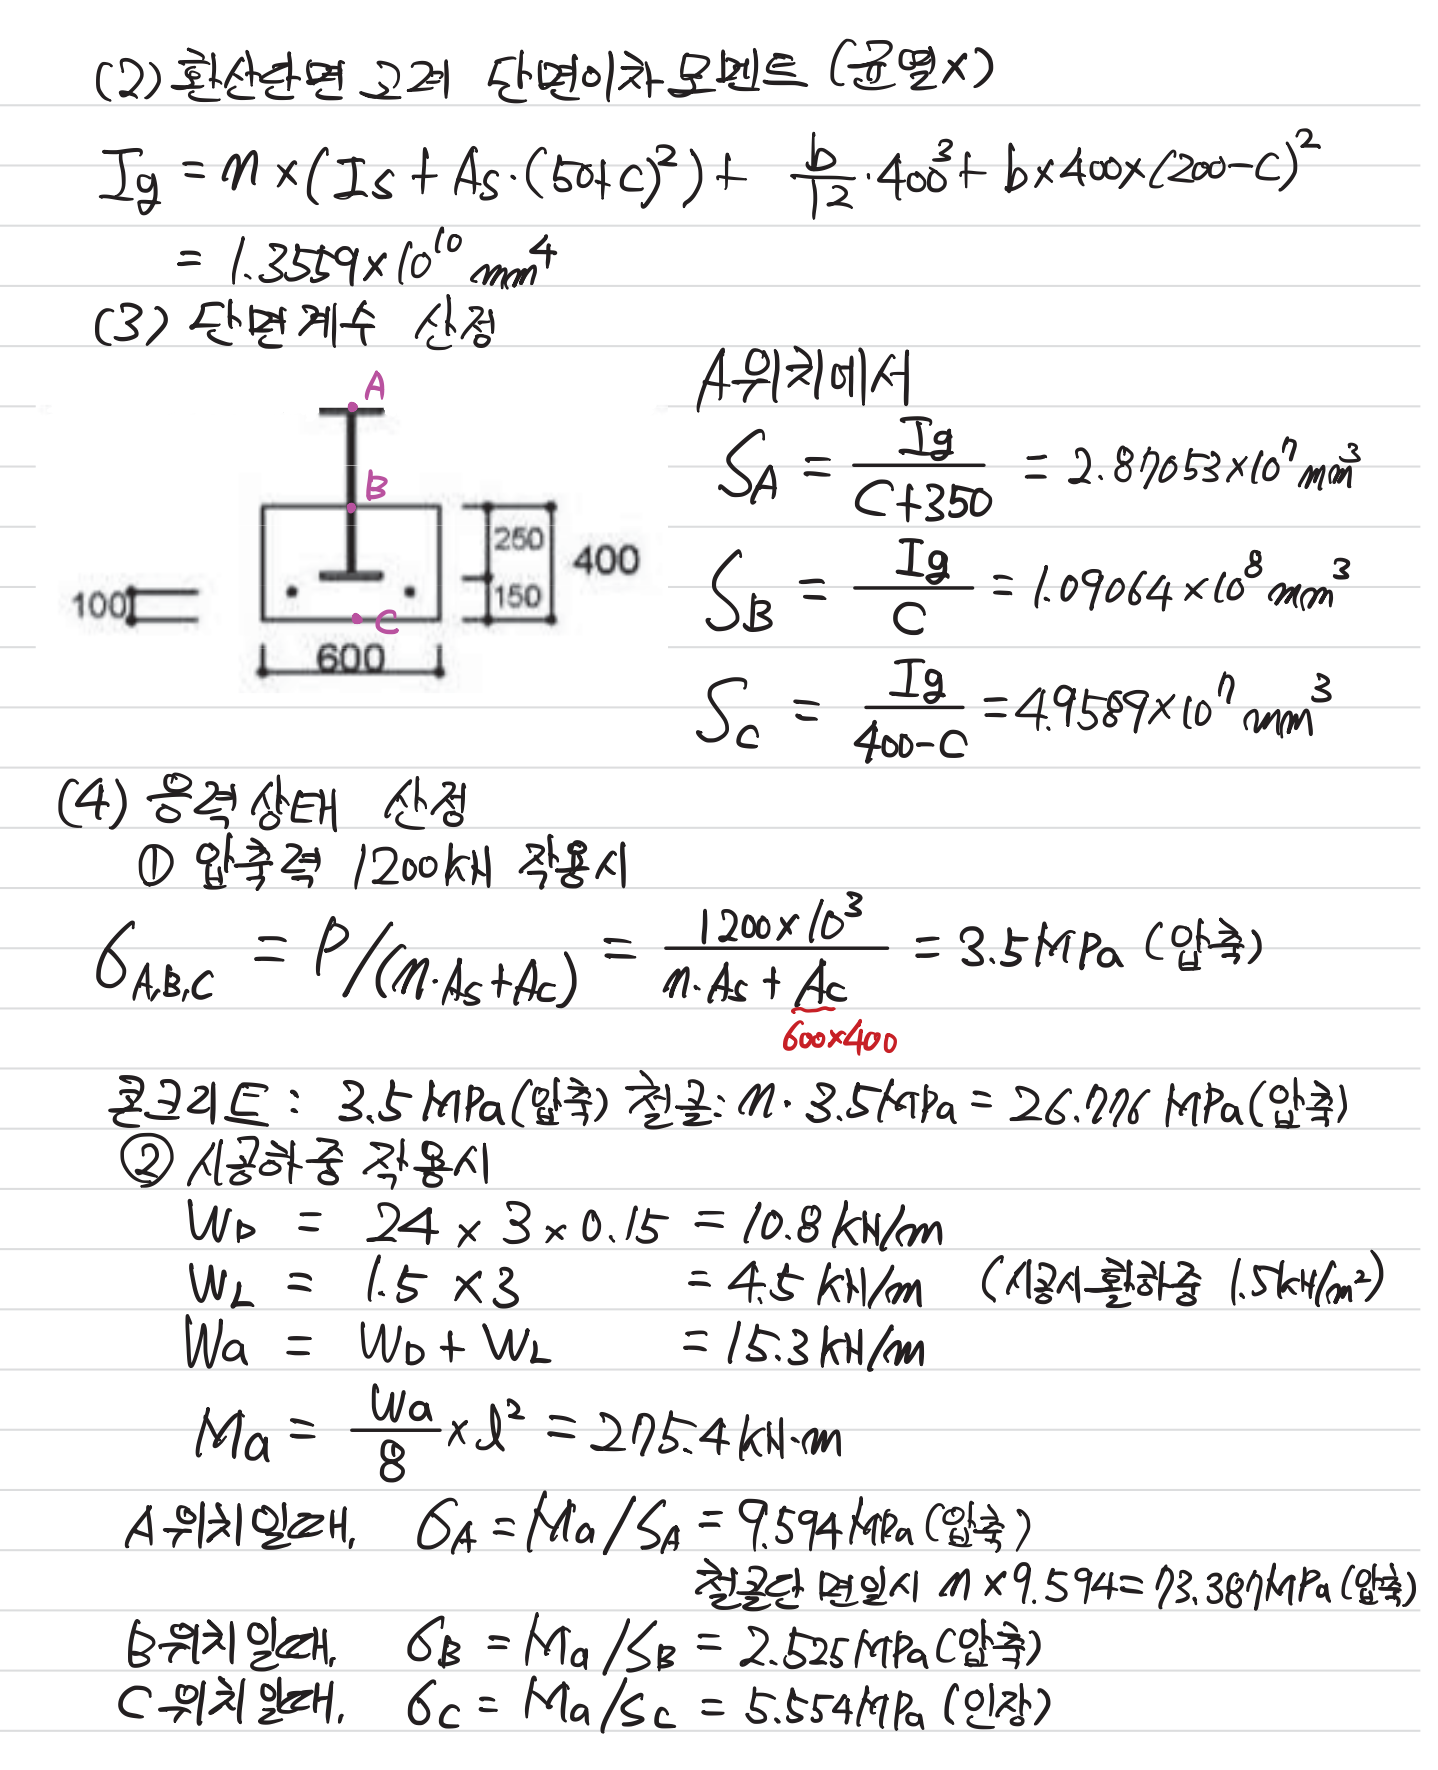 (2) 환산단면 고려 단면이차모멘트 (균열x)
Ig = n×(Is + As·(50+c)²) + b/12·400³ + b×400×(200-c)²
= 1.3559×10¹⁰ mm⁴
(3) 단면계수 산정
A
B
C
250
150
400
100
600
A위치에서
S_A = Ig/(C+350) = 2.87053×10⁷ mm³
S_B = Ig/C = 1.09064×10⁸ mm³
S_C = Ig/(400-C) = 4.9589×10⁷ mm³
(4) 응력상태 산정
① 압축력 1200kN 작용시
σ_A,B,C = P/(n·As+Ac) = 1200×10³/(n·As + Ac) = 3.5MPa (압축)
600×400
콘크리트 : 3.5MPa(압축) 철골: n·3.5MPa = 26.776 MPa(압축)
② 시공하중 작용시
W_D = 24 × 3 × 0.15 = 10.8 kN/m
W_L = 1.5 × 3 = 4.5 kN/m (시공시 활하중 1.5kN/m²)
Wa = W_D + W_L = 15.3 kN/m
Ma = Wa/8 × l² = 275.4 kN·m
A위치일때, σ_A = Ma/S_A = 9.594MPa (압축)
철골단면일시 n×9.594 = 73.387MPa (압축)
B위치일때, σ_B = Ma/S_B = 2.525MPa (압축)
C위치일때, σ_C = Ma/S_C = 5.554MPa (인장)